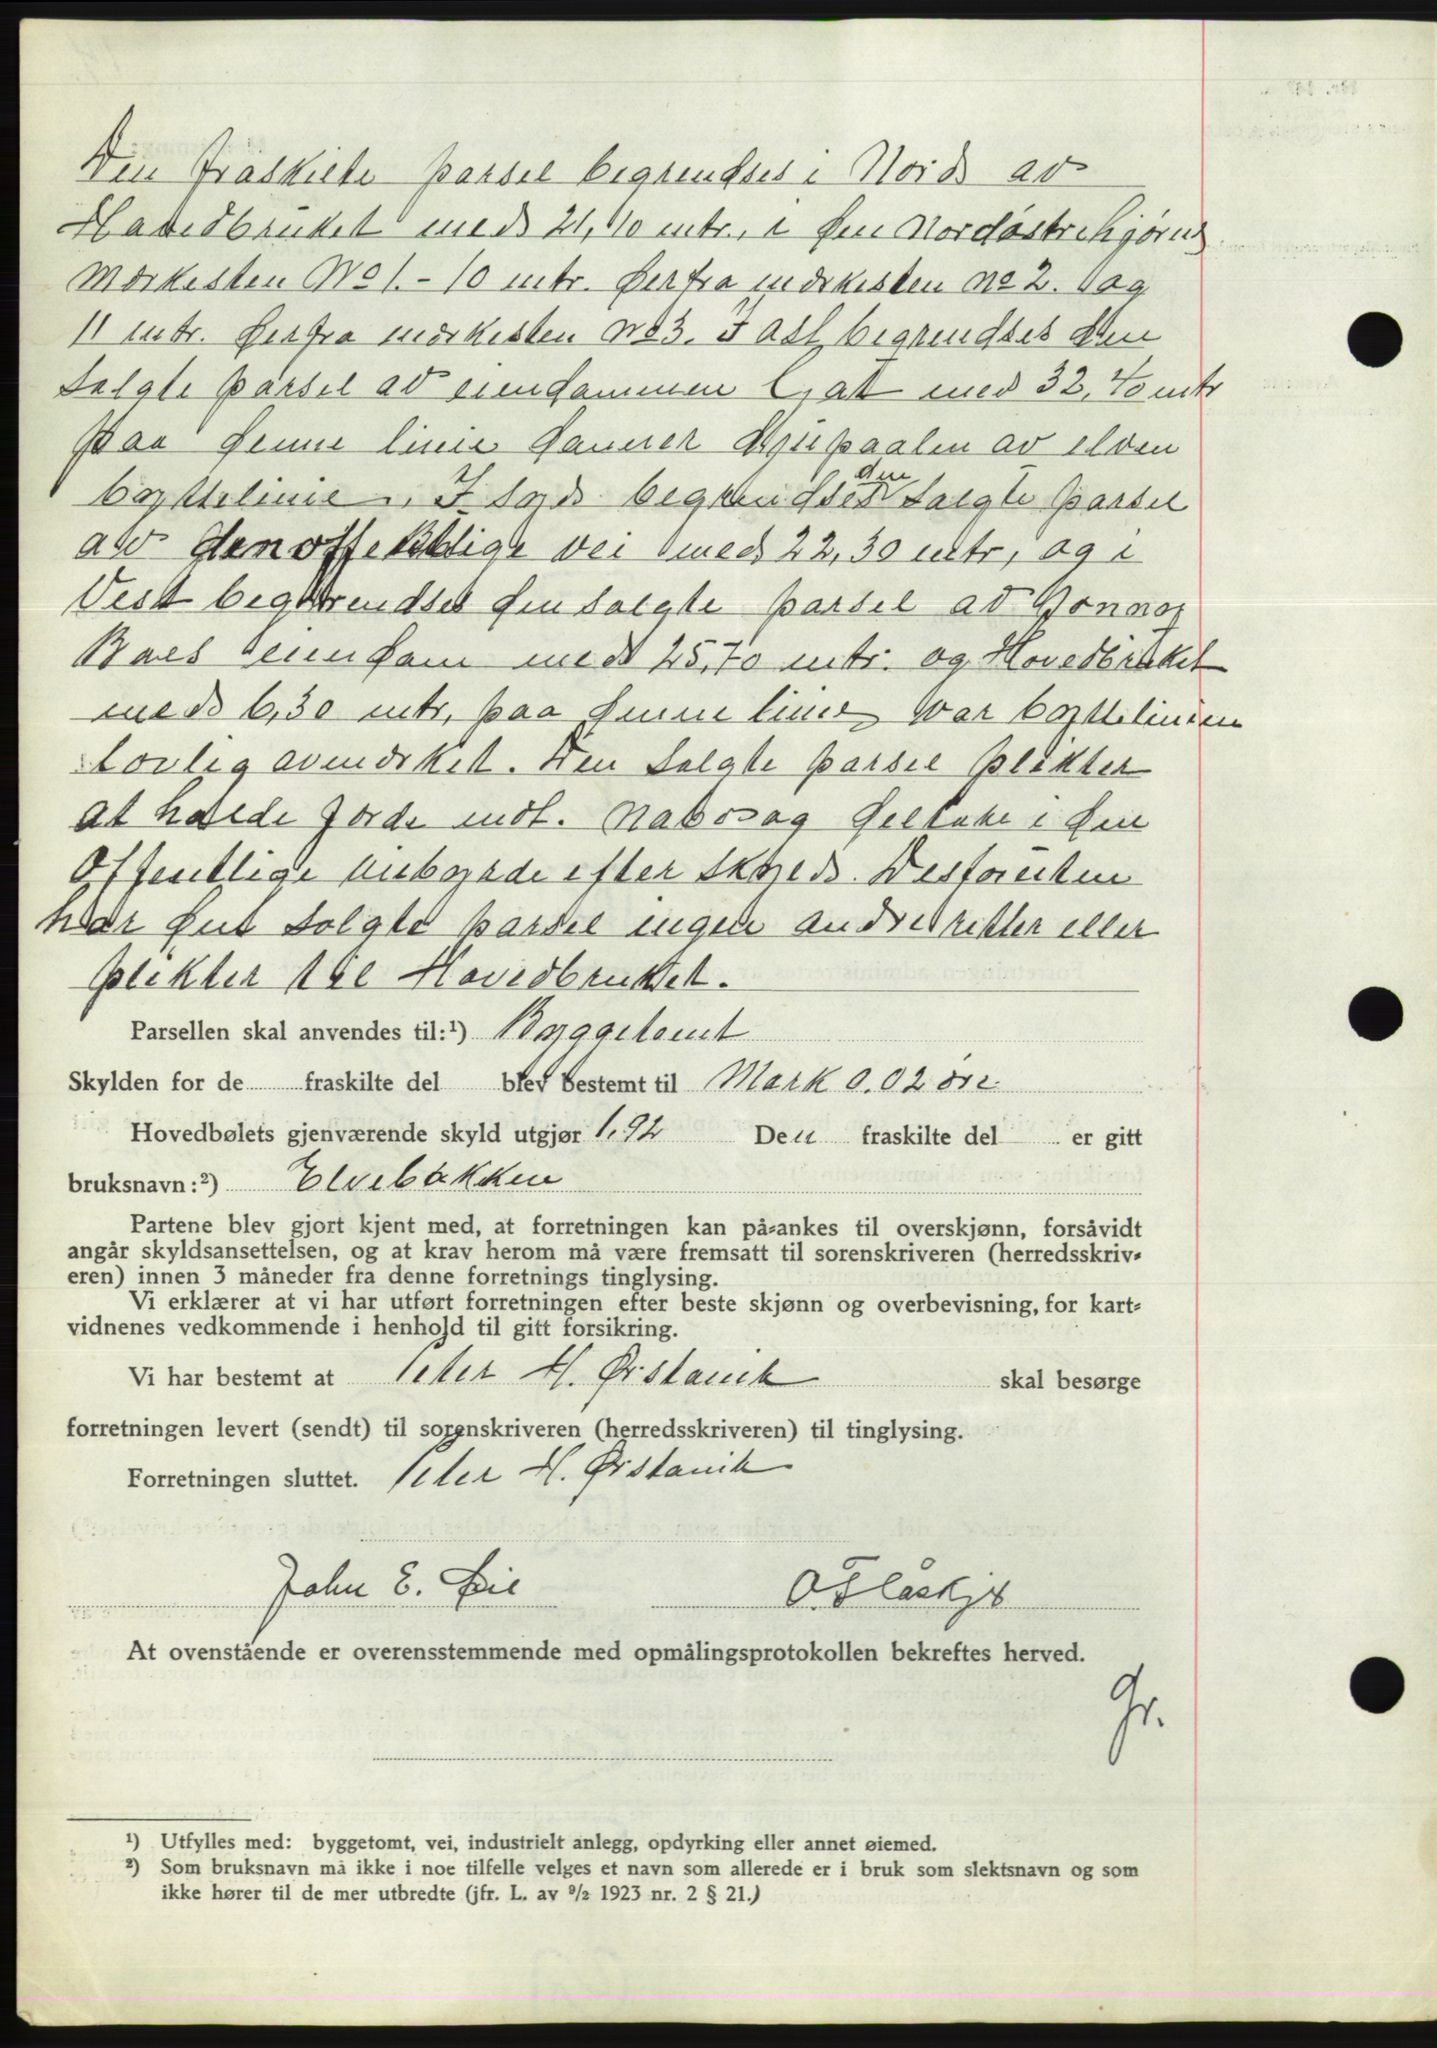 Den fraskilte parsel begrendses i Nord av
Hovedbruket med 21,10 mtr., i den Nordøstre hjørne
Merkesten No 1. - 10 mtr. derfra merkesten no 2. og
11 mtr. derfra merkesten No 3. I Øst begrendses den
solgte parsel av eiendommen Gat med 32,40 mtr
paa denne linie danner djupaalen av elven
byttelinie. I Syd begrendses den solgte parsel
av den offentlige vei med 22,30 mtr, og i
Vest begrendses den solgte parsel av
eiendom med 25,70 mtr. og Hovedbruket
med 6,30 mtr, paa denne linie var byttelinien
lovlig avmerket. Den solgte parsel plikter
at holde jorde mot. Nabo og deltake i den
Offentlige veibyrde efter skyld. Desforuten
har den solgte parsel ingen andre retter eller
plikter til Hovedbruket.
Parsellen skal anvendes til:¹) Byggetomt
Skylden for de fraskilte del blev bestemt til Mark 0.02 øre
Hovedbølets gjenværende skyld utgjør 1,92 Den fraskilte del er gitt
bruksnavn:²) Elvebakken
Partene blev gjort kjent med, at forretningen kan på-ankes til overskjønn, forsåvidt
angår skyldsansettelsen, og at krav herom må være fremsatt til sorenskriveren (herredsskriv-
eren) innen 3 måneder fra denne forretnings tinglysing.
Vi erklærer at vi har utført forretningen efter beste skjønn og overbevisning, for kart-
vidnenes vedkommende i henhold til gitt forsikring.
Vi har bestemt at Peter H. Ørstavik skal besørge
forretningen levert (sendt) til sorenskriveren (herredsskriveren) til tinglysing.
Forretningen sluttet. Peter H. Ørstavik
John E. O. Flåskjer
At ovenstående er overensstemmende med opmålingsprotokollen bekreftes herved.
Gr.
¹) Utfylles med: byggetomt, vei, industrielt anlegg, opdyrking eller annet øiemed.
²) Som bruksnavn må ikke i noe tilfelle velges et navn som allerede er i bruk som slektsnavn og som
ikke hører til de mer utbredte (jfr. L. av ⁹/₂ 1923 nr. 2 § 21.)